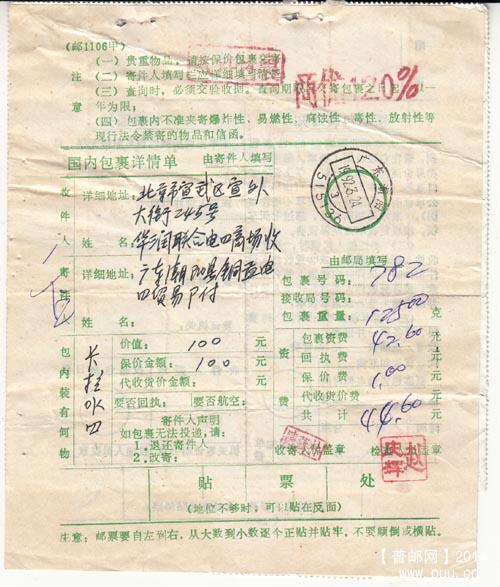 (邮1106甲)
(一) 贵重物品，请按保价包裹交寄
注 (二) 寄件人填写栏应详细填写清楚
(三) 查询时，必须交验收据。查询期限自交寄包裹之日起一
意 年为限；
(四) 包裹内不准夹寄爆炸性、易燃性、腐蚀性、毒性、放射性等
现行法令禁寄的物品和信函。
120%
国内包裹详情单 由寄件人填写
广东
1992.6.24
515196
收件人
详细地址：北京市宣武区宣外
大街245号
姓 名 华润联合电四商场收
寄件人
详细地址：广东潮阳县铜盂电
四贸易户付
姓 名：
由邮局填写
包裹号码：782
接收局号码：
包裹重量：12500 克
包内装有何物
价值：100 元
保价金额：100 元
代收货价金额： 元
要否回执： 要否航空：
寄件人声明
如包裹无法投递，请：
1、退还寄件人
2、改寄：
资费
包裹资费 42.60 元
回执费 元
保价费 1.00 元
代收货价费 元
共计 44.60 元
收寄人员盖章
赵庆辉
贴 票 处
(地位不够时，可以贴在反面)
注意：邮票要自左到右，从大数到小数逐个正贴并贴牢，不要颠倒或横贴。
【普邮网】